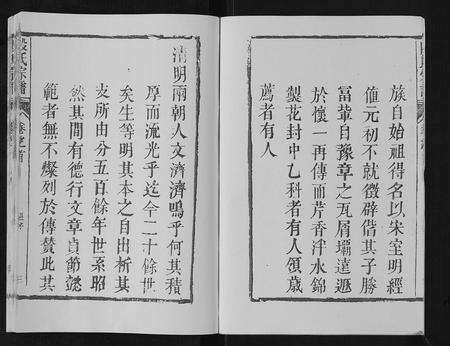 族自始祖得名以宋室明經
值元初不就徵辟偕其子勝
甫輩自豫章之瓦屑壩達遯
於懷一再傳而芹香泮水錦
製花封中乙科者有人領歲
薦者有人
清明兩朝人文濟濟嗚乎何其積
厚而流光乎迄今二十餘世
矣生等明其本之自出析其
支所由分五百餘年世系昭
然其間有德行文章貞節懿
範者無不燦列於傳贊此其
段氏宗譜
卷之首